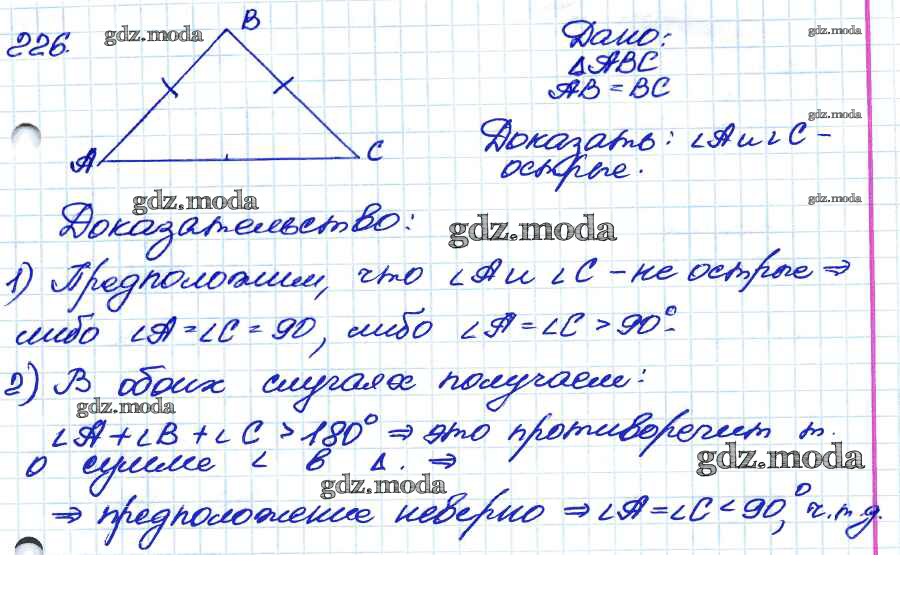 226.
gdz.moda
B
A
C
Дано:
gdz.moda
△ABC
AB = BC
gdz.moda
Доказать: ∠A и ∠C –
острые.
gdz.moda
gdz.moda
Доказательство:
gdz.moda
1) Предположим, что ∠A и ∠C – не острые ⇒
либо ∠A = ∠C = 90, либо ∠A = ∠C > 90°.
2) В обоих случаях получаем:
gdz.moda
∠A + ∠B + ∠C > 180° ⇒ это противоречит т.
о сумме ∠ в △. ⇒
gdz.moda
gdz.moda
⇒ предположение неверно ⇒ ∠A = ∠C < 90°, ч.т.д.